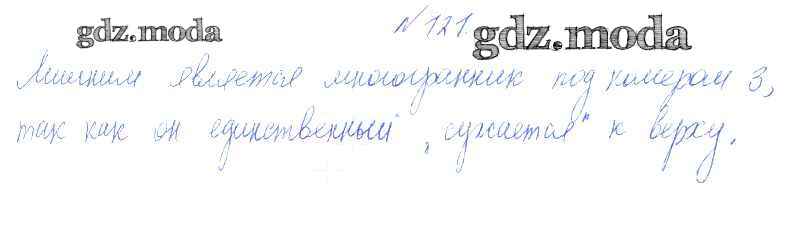 gdz.moda
№ 121.
gdz.moda
Лишним является многогранник под номером 3,
так как он единственный „сужается“ к верху.